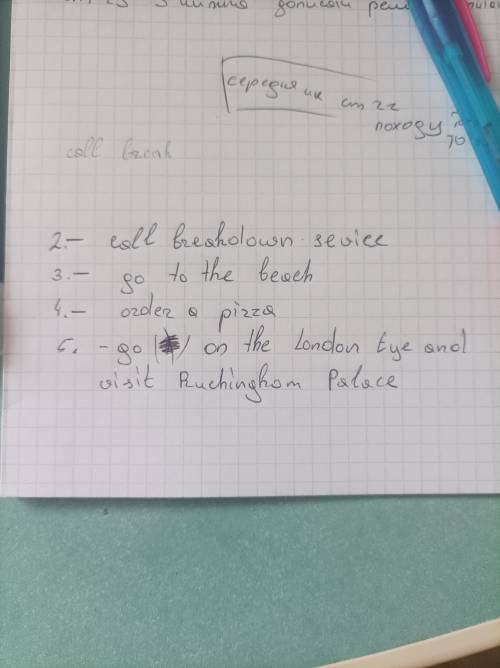 3 дописали
середина
ст 22
походу
call break
2.- call breakdown sevice
3.- go to the beach
4.- order a pizza
5. - go ( ) on the London Eye and
visit Buchinghom Palace